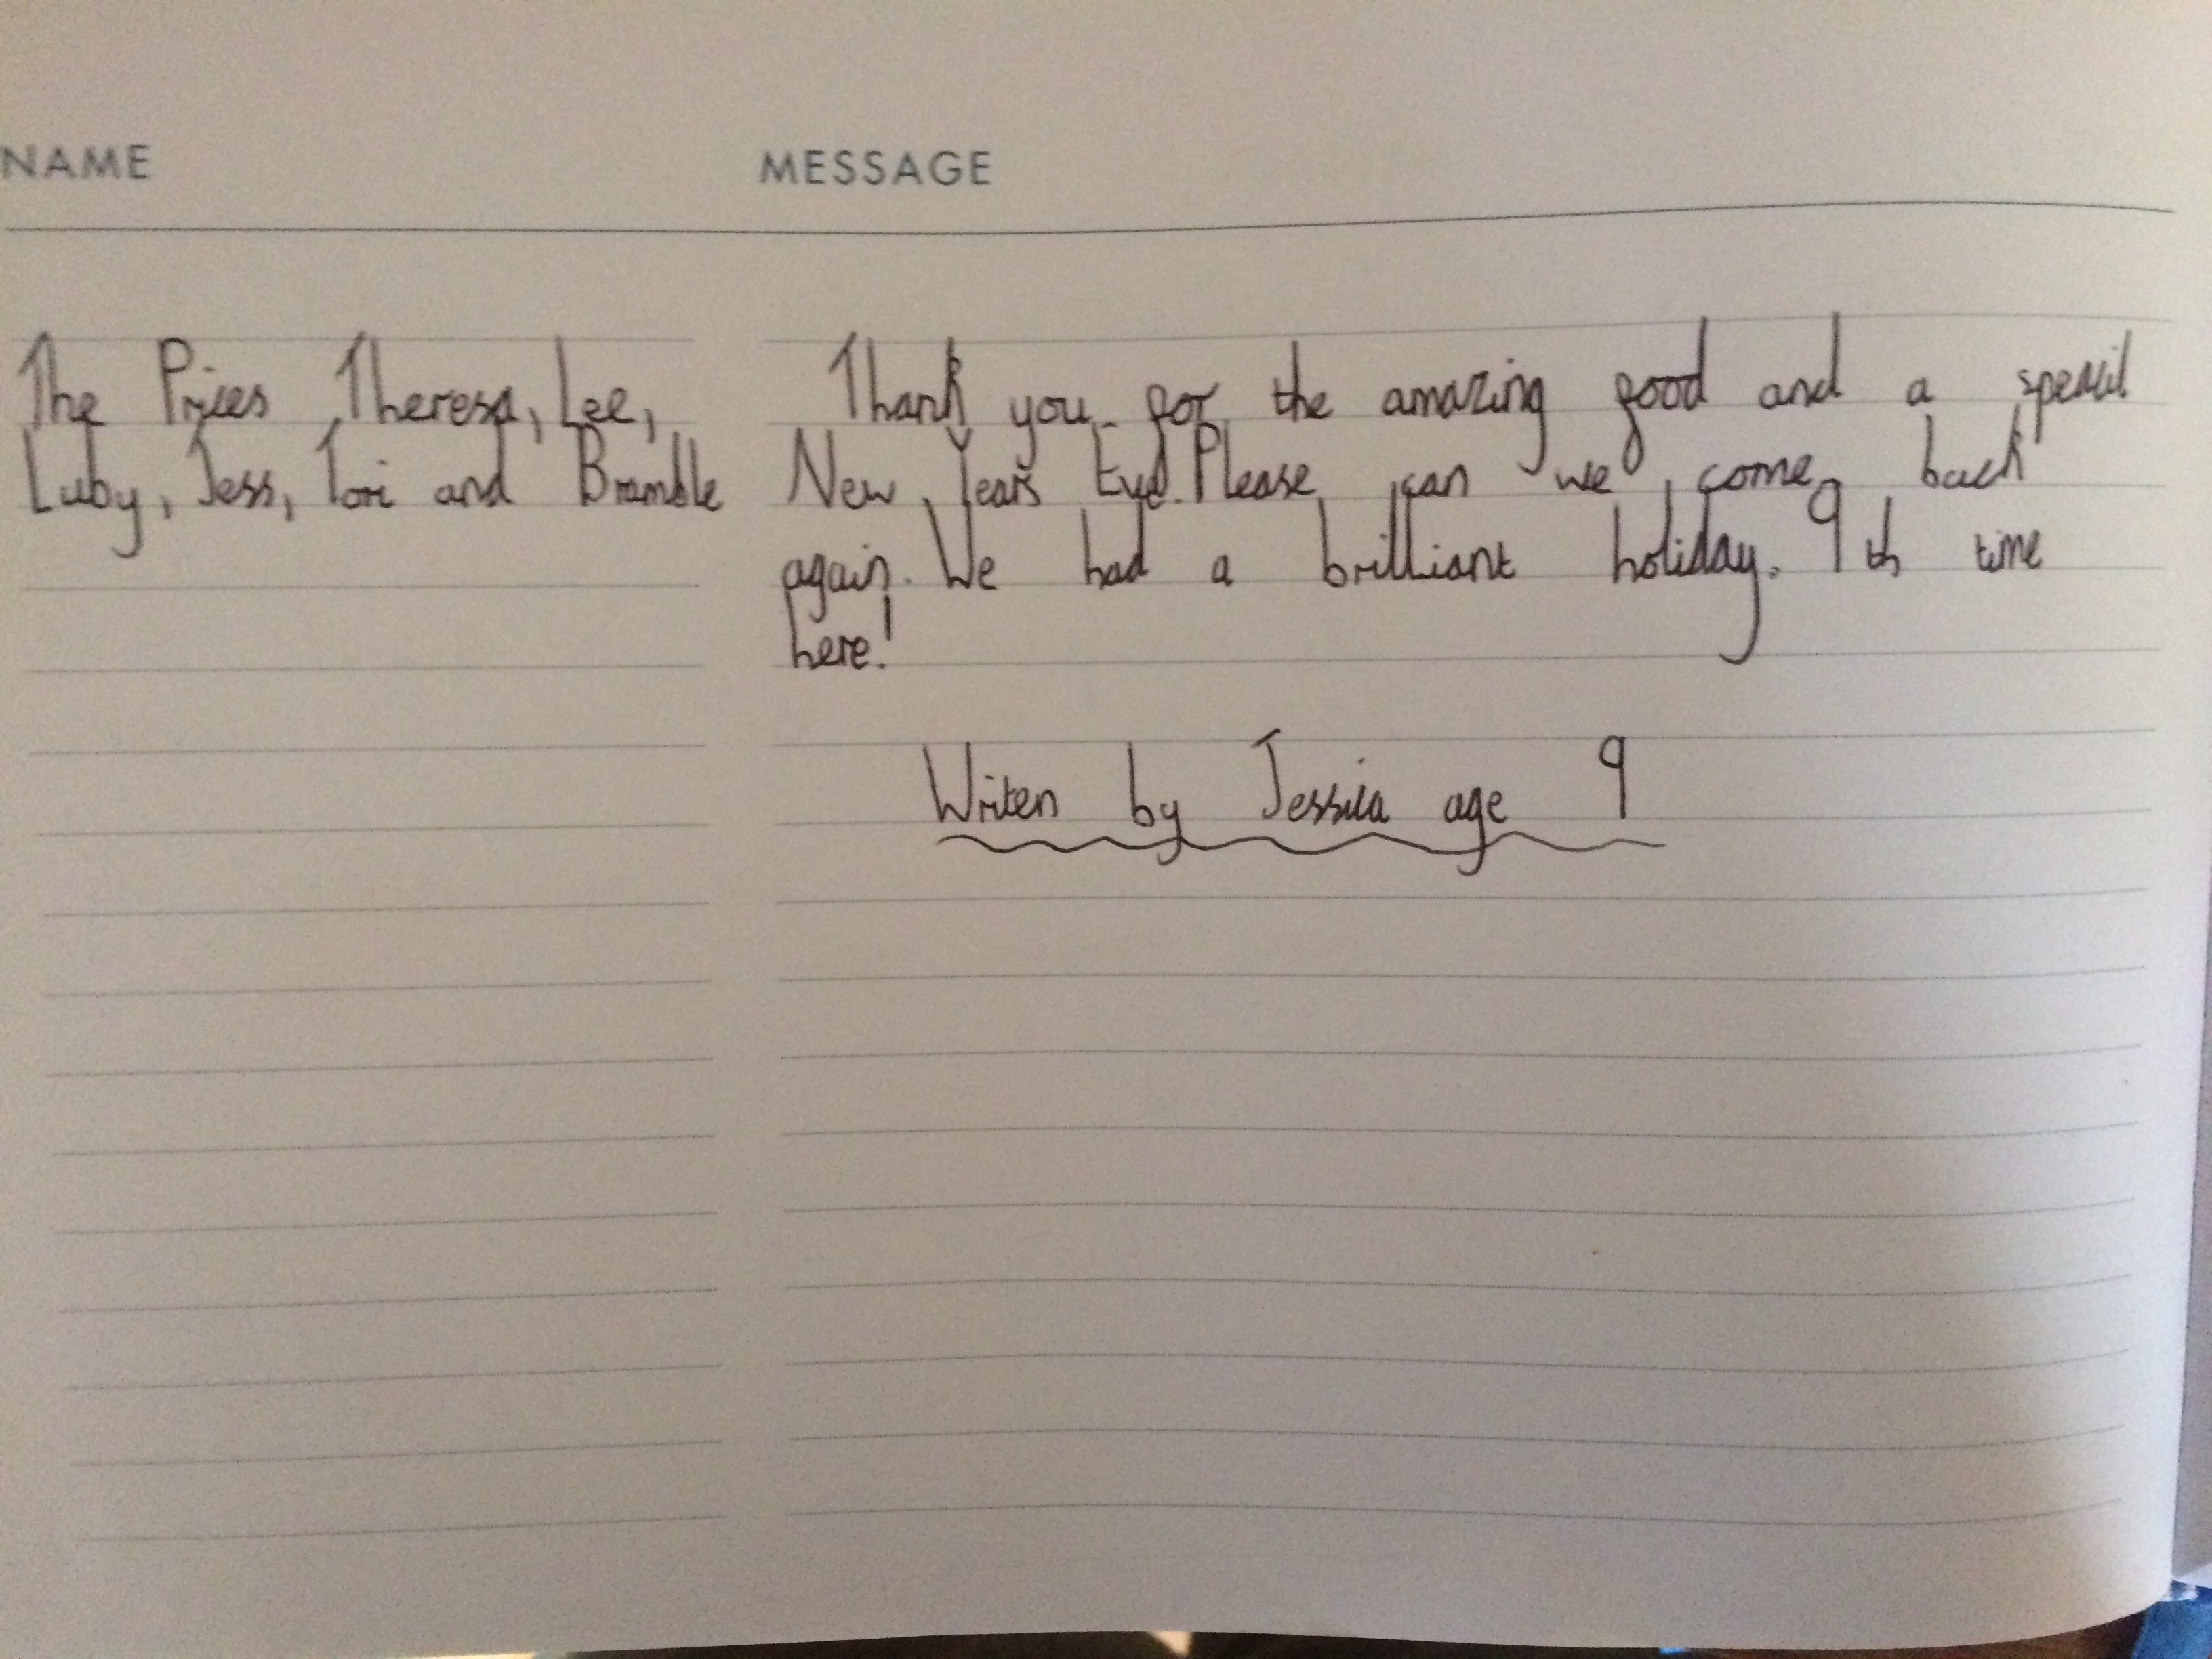 NAME MESSAGE
The Pries Theresa, Lee,
Luby, Jess, Tori and Bramble
Thank you for the amazing good and a specil
New Years Eve. Please can we come back
again. We had a brilliant holiday. 9th time
here!
Writen by Jessica age 9